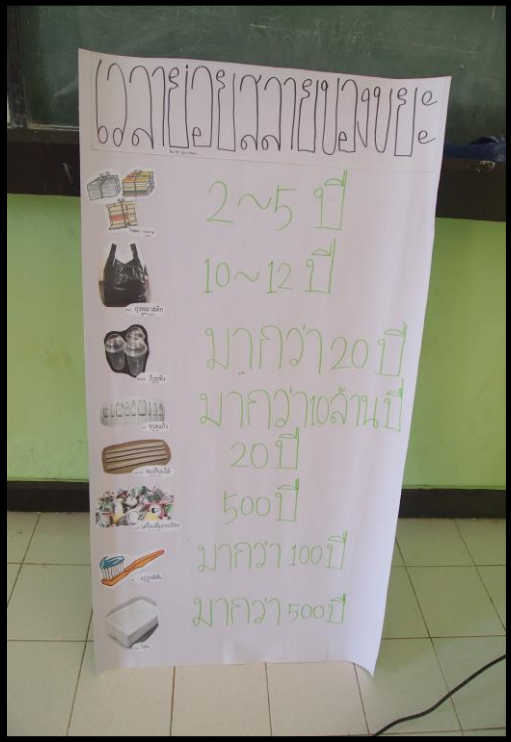 เวลาย่อยสลายของขยะ
2~5 ปี
10~12 ปี
ถุงพลาสติก
มากว่า 20 ปี
มากว่า10ล้านปี
20 ปี
500ปี
มากว่า 100ปี
มากว่า 500ปี
โฟม